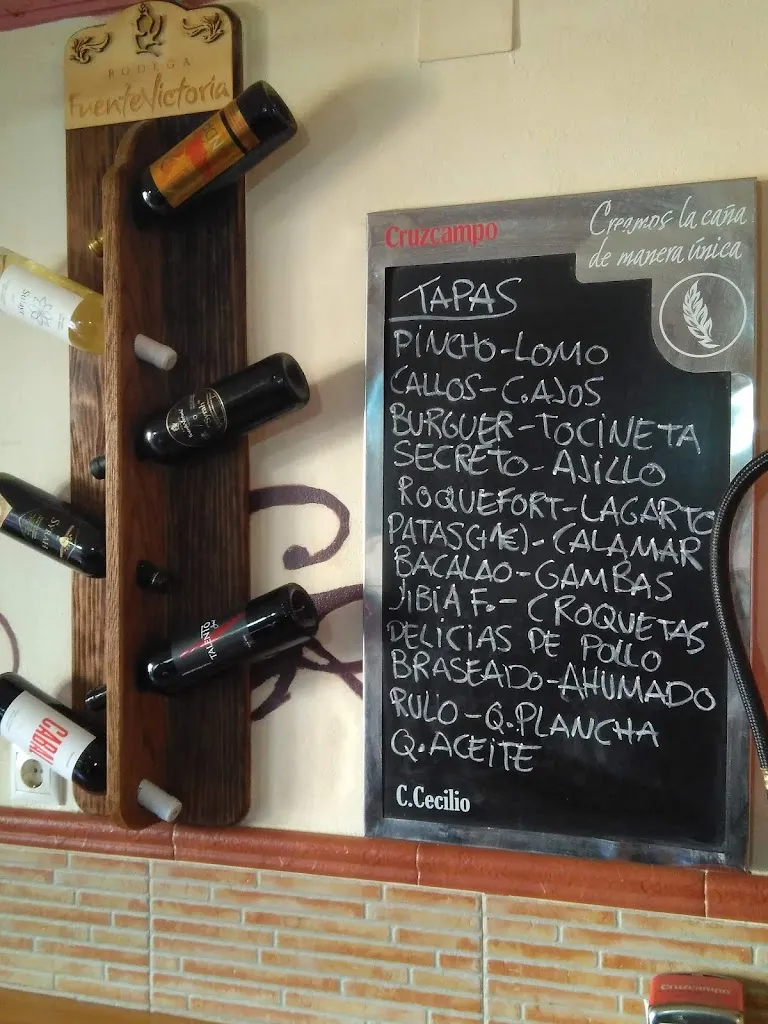 BODEGA
FuenteVictoria
Cruzcampo
Creamos la caña
de manera única
TAPAS
PINCHO-LOMO
CALLOS-C.AJOS
BURGUER-TOCINETA
SECRETO-AJILLO
ROQUEFORT-LAGARTO
PATAS(+1€)-CALAMAR
BACALAO-GAMBAS
JIBIA F.-CROQUETAS
DELICIAS DE POLLO
BRASEADO-AHUMADO
RULO-Q.PLANCHA
Q.ACEITE
C.Cecilio
TALENTO
Cruzcampo